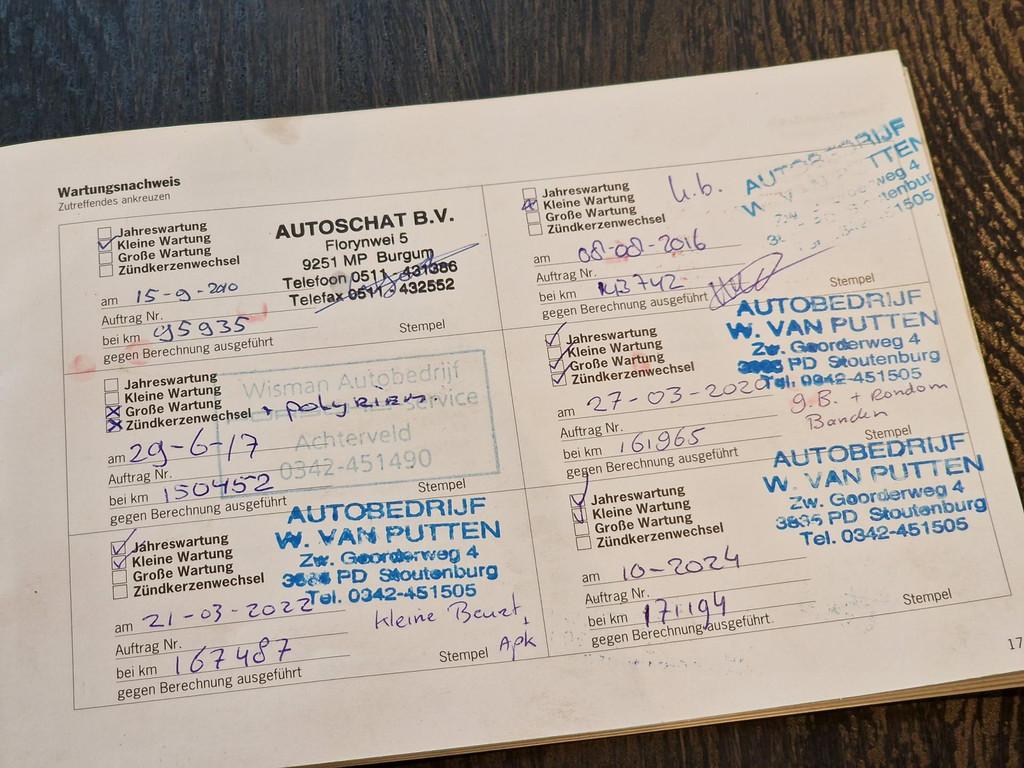 Wartungsnachweis
Zutreffendes ankreuzen
Jahreswartung
Kleine Wartung
Große Wartung
Zündkerzenwechsel
AUTOSCHAT B.V.
Florynwei 5
9251 MP Burgum
Telefoon 0511 - 431386
Telefax 0511 - 432552
am 15-9-2010
Auftrag Nr.
bei km 95935
gegen Berechnung ausgeführt
Stempel
Jahreswartung
Kleine Wartung
Große Wartung
Zündkerzenwechsel
k.b.
AUTOBEDRIJF
W. TTEN
Zw. weg 4
tenbur
1505
am 08-08-2016
Auftrag Nr.
bei km 143742
gegen Berechnung ausgeführt
Stempel
Jahreswartung
Kleine Wartung
Große Wartung
Zündkerzenwechsel + poly riem
Wisman Autobedrijf
service
Achterveld
0342-451490
am 29-6-17
Auftrag Nr.
bei km 150452
gegen Berechnung ausgeführt
Stempel
Jahreswartung
Kleine Wartung
Große Wartung
Zündkerzenwechsel
AUTOBEDRIJF
W. VAN PUTTEN
Zw. Goorderweg 4
PD Stoutenburg
Tel. 0342-451505
am 27-03-2020
g.B. + Rondom
Banden
Auftrag Nr.
bei km 161965
gegen Berechnung ausgeführt
Stempel
Jahreswartung
Kleine Wartung
Große Wartung
Zündkerzenwechsel
AUTOBEDRIJF
W. VAN PUTTEN
Zw. Goorderweg 4
3835 PD Stoutenburg
Tel. 0342-451505
am 21-03-2022
kleine Beurt,
Apk
Auftrag Nr.
bei km 167487
gegen Berechnung ausgeführt
Stempel
Jahreswartung
Kleine Wartung
Große Wartung
Zündkerzenwechsel
AUTOBEDRIJF
W. VAN PUTTEN
Zw. Goorderweg 4
3835 PD Stoutenburg
Tel. 0342-451505
am 10-2024
Auftrag Nr.
bei km 171194
gegen Berechnung ausgeführt
Stempel
17